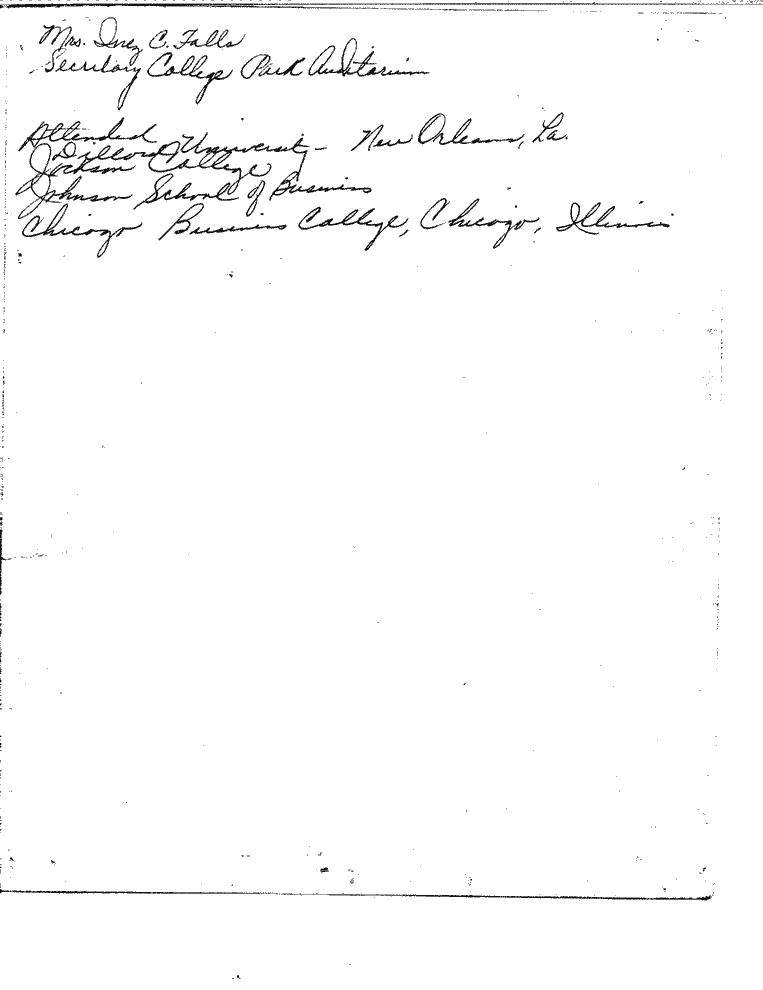 Mrs. Inez C. Falls
Secretary College Park Auditorium
Attended
Dillard University - New Orleans, La.
Jackson College
Johnson School of Business
Chicago Business College, Chicago, Illinois